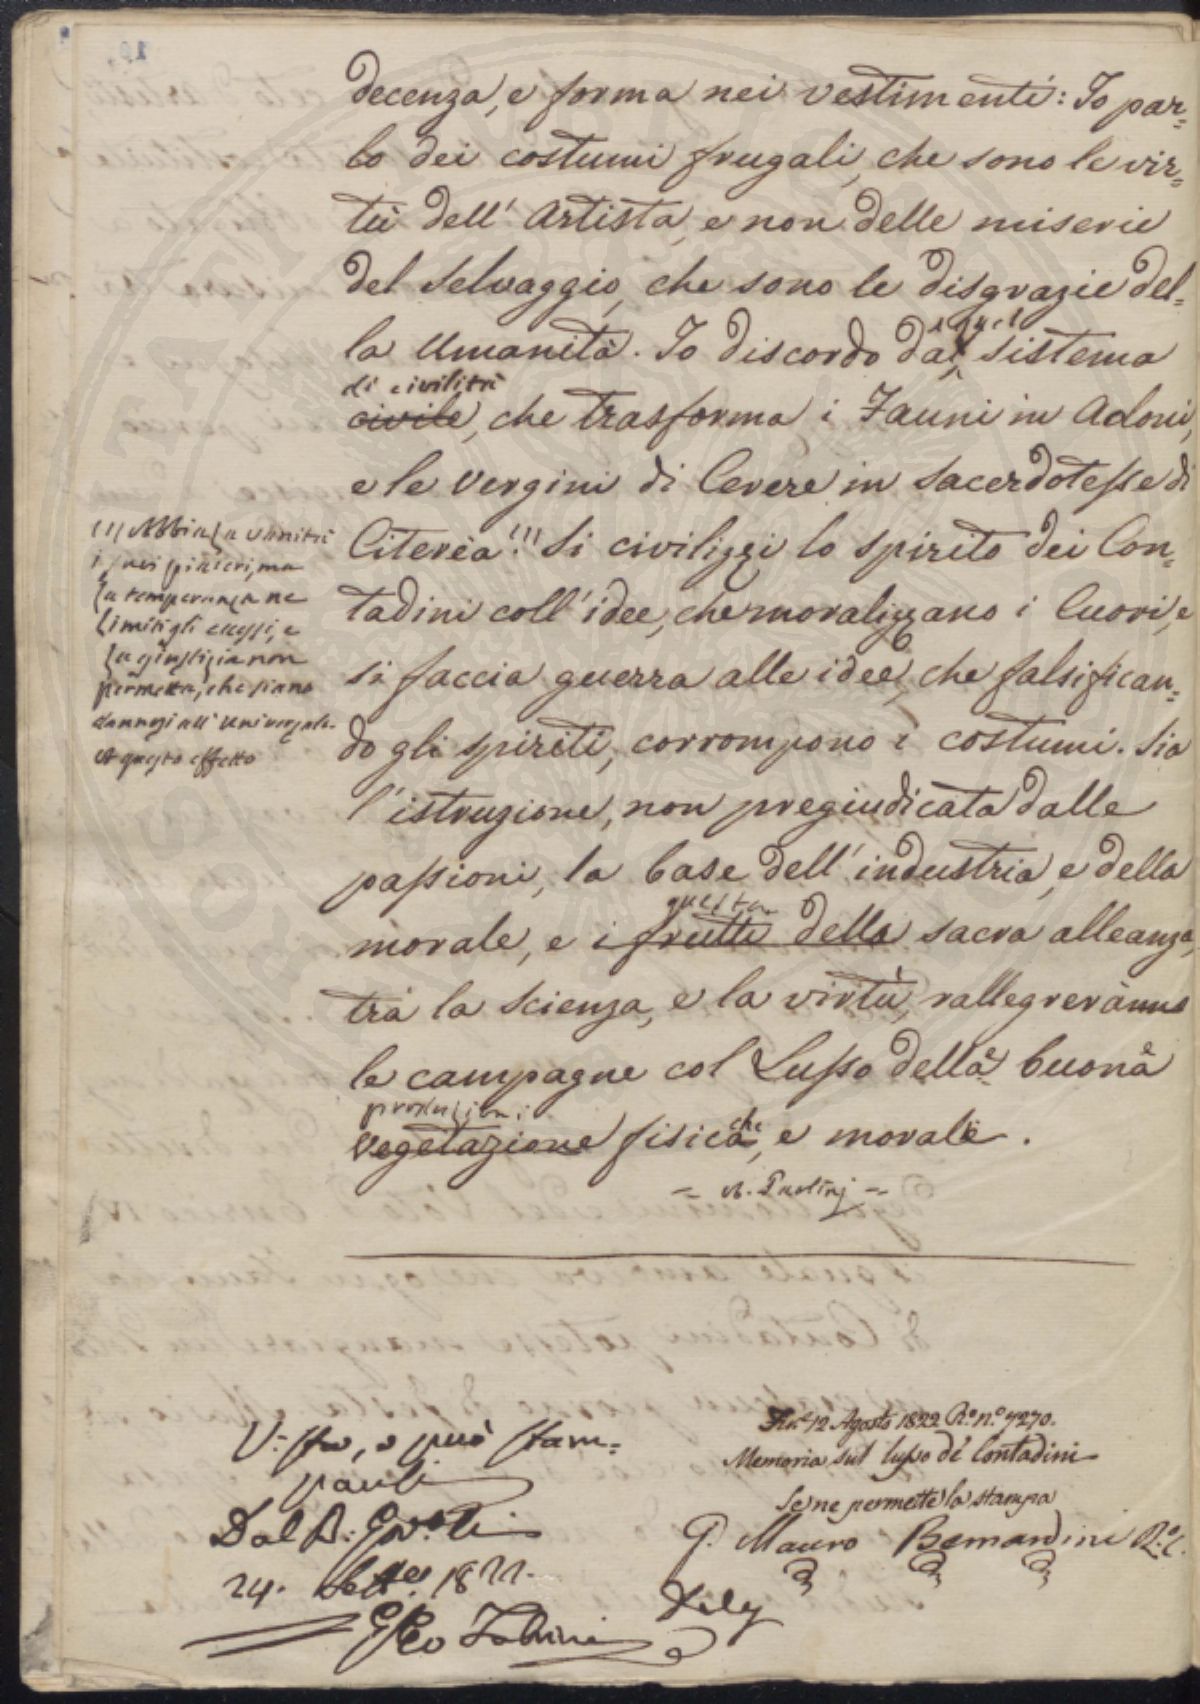 decenza, e forma nei vestimenti: Io par-
lo dei costumi frugali, che sono le vir-
tù dell' Artista, e non delle miserie
del Selvaggio, che sono le disgrazie del-
la Umanità. Io discordo da quel sistema
di civiltà
civile, che trasforma i Fauni in Adoni,
e le Vergini di Cerere in Sacerdotesse di
Citerèa!!! Si civilizzi lo spirito dei Con-
tadini coll' idee, che moralizzano i Cuori, e
si faccia guerra alle idee, che falsifican-
do gli spiriti, corrompono i costumi. Sia
l'istruzione, non pregiudicata dalle
passioni, la base dell' industria, e della
questa
morale, e i frutti della sacra alleanza,
trà la Scienza, e la virtù, rallegreranno
le campagne col Lusso delle buone
produzioni
vegetazione fisiche, e morali.
(1) Abbia la vanità
i suoi piaceri, ma
la temperanza ne
limiti gli eccessi, e
la giustizia non
permetta, che siano
dannosi all' universale.
A questo effetto
= A. Paolinj =
Visto, si può stam-
parli
Dal B:
24. Sett.e 1822.
12 Agosto 1822 R.o n.o 7270.
Memoria sul lusso de' Contadini
Se ne permette la stampa
P. Mauro Bernardini R.o C.